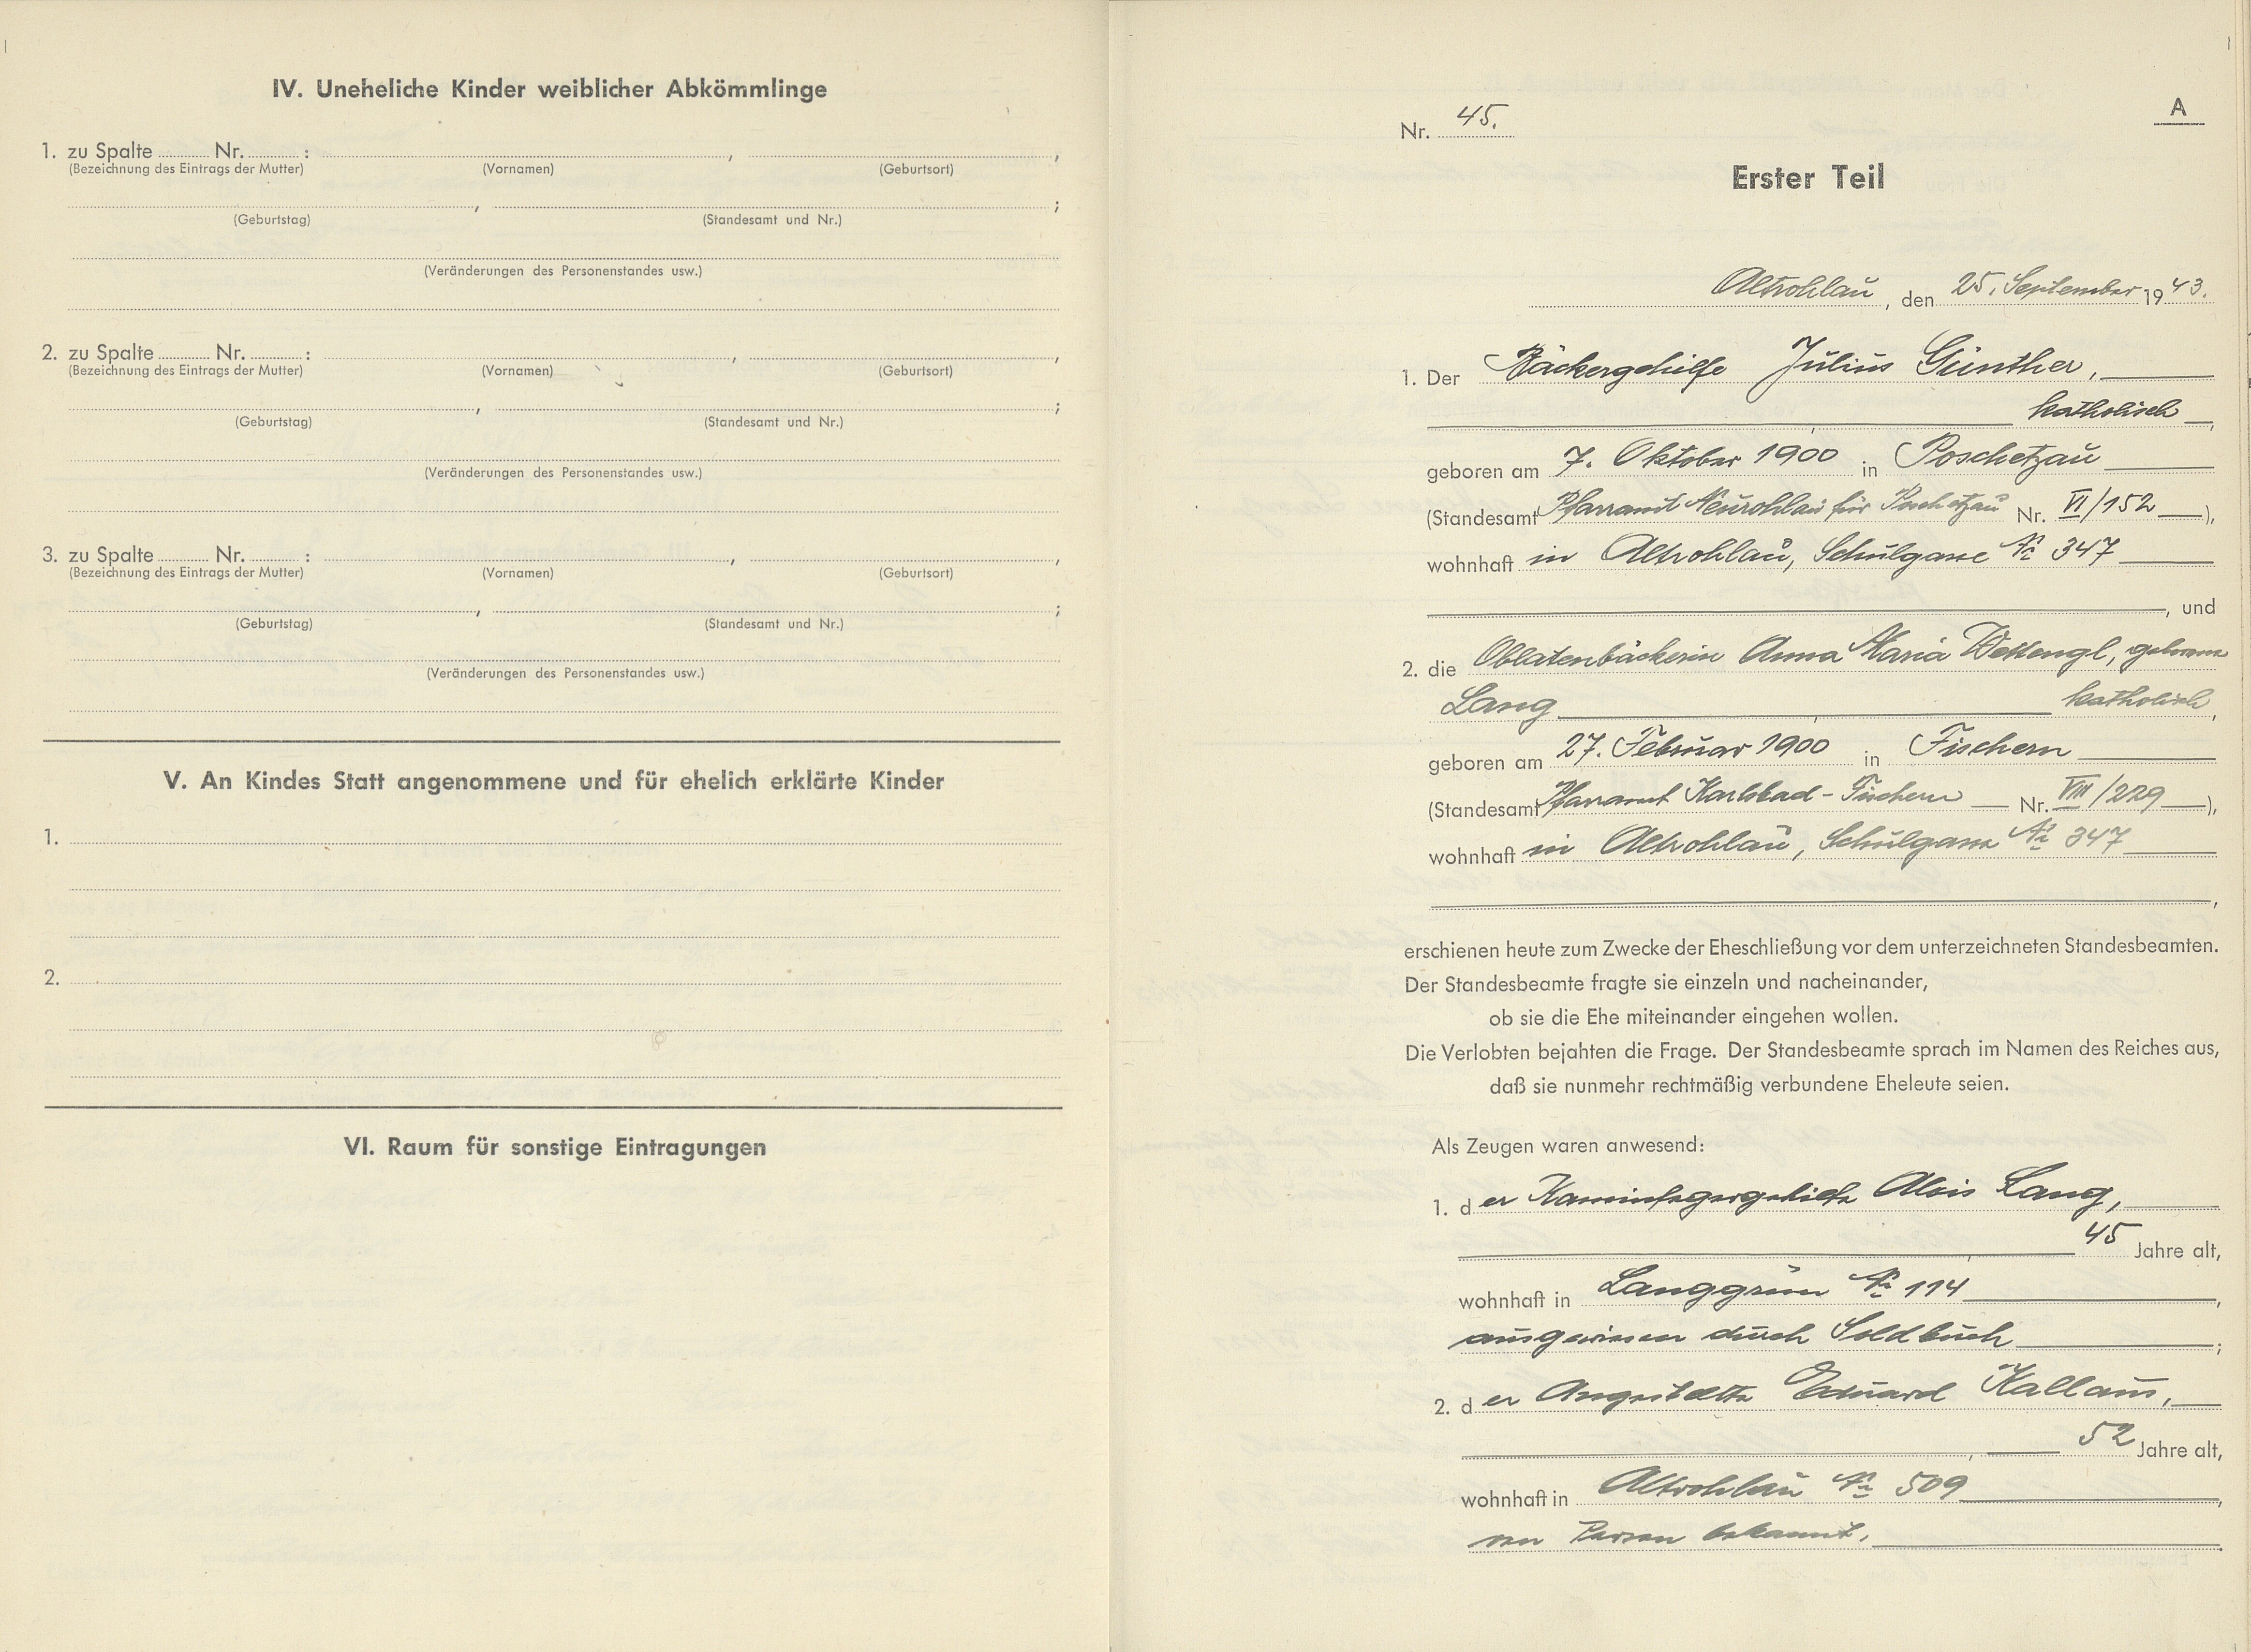 IV. Uneheliche Kinder weiblicher Abkömmlinge
1. zu Spalte ........ Nr. ........ : ........ , ........ ,
(Bezeichnung des Eintrags der Mutter) (Vornamen) (Geburtsort)
........ , ........ ;
(Geburtstag) (Standesamt und Nr.)
(Veränderungen des Personenstandes usw.)
2. zu Spalte ........ Nr. ........ : ........ , ........ ,
(Bezeichnung des Eintrags der Mutter) (Vornamen) (Geburtsort)
........ , ........ ;
(Geburtstag) (Standesamt und Nr.)
(Veränderungen des Personenstandes usw.)
3. zu Spalte ........ Nr. ........ : ........ , ........ ,
(Bezeichnung des Eintrags der Mutter) (Vornamen) (Geburtsort)
........ , ........ ;
(Geburtstag) (Standesamt und Nr.)
(Veränderungen des Personenstandes usw.)
V. An Kindes Statt angenommene und für ehelich erklärte Kinder
1.
2.
VI. Raum für sonstige Eintragungen
A
Nr. 45.
Erster Teil
Altrohlau, den 25. September 1943.
1. Der Bäckergehilfe Julius Günther,
katholisch,
geboren am 7. Oktober 1900 in Poschetzau
(Standesamt Pfarramt Neurohlau für Poschetzau Nr. VI/152),
wohnhaft in Altrohlau, Schulgasse № 347
, und
2. die Oblatenbäckerin Anna Maria Wettengl, geborene
Lang katholisch,
geboren am 27. Februar 1900 in Fischern
(Standesamt Pfarramt Karlsbad-Fischern Nr. VIII/229),
wohnhaft in Altrohlau, Schulgasse № 347
,
erschienen heute zum Zwecke der Eheschließung vor dem unterzeichneten Standesbeamten.
Der Standesbeamte fragte sie einzeln und nacheinander,
ob sie die Ehe miteinander eingehen wollen.
Die Verlobten bejahten die Frage. Der Standesbeamte sprach im Namen des Reiches aus,
daß sie nunmehr rechtmäßig verbundene Eheleute seien.
Als Zeugen waren anwesend:
1. der Kaminfegergehilfe Alois Lang,
45 Jahre alt,
wohnhaft in Langgrün № 114,
ausgewiesen durch Soldbuch;
2. der Angestellte Eduard Kallaus,
52 Jahre alt,
wohnhaft in Altrohlau № 509,
von Person bekannt.